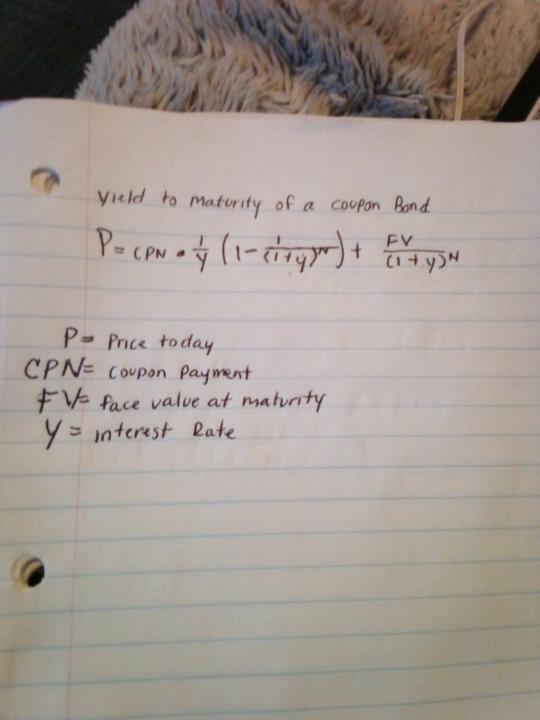 Yield to maturity of a coupon Bond
P = CPN • 1/y (1 - 1/(1+y)^N) + FV/(1+y)^N
P = Price today
CPN = Coupon Payment
FV = face value at maturity
Y = interest Rate